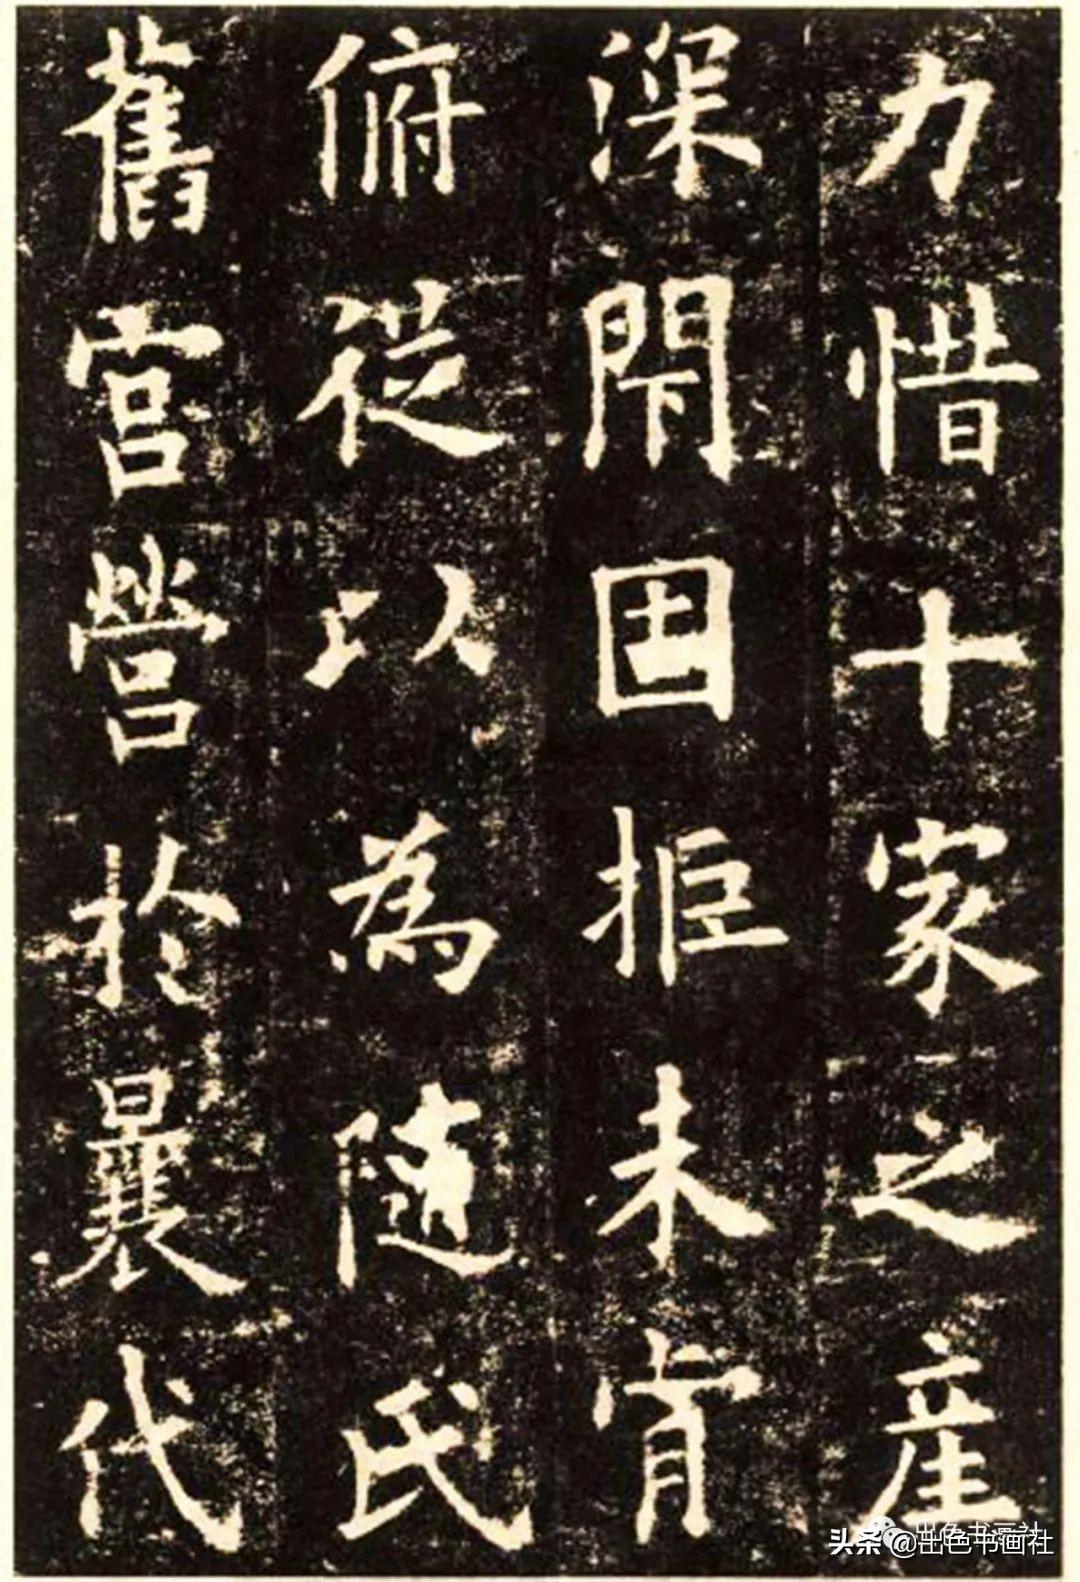 力惜十家之產
深閇固拒未肯
俯從以為隨氏
舊宮營於曩代
头条 @出色书画社
出色书画社